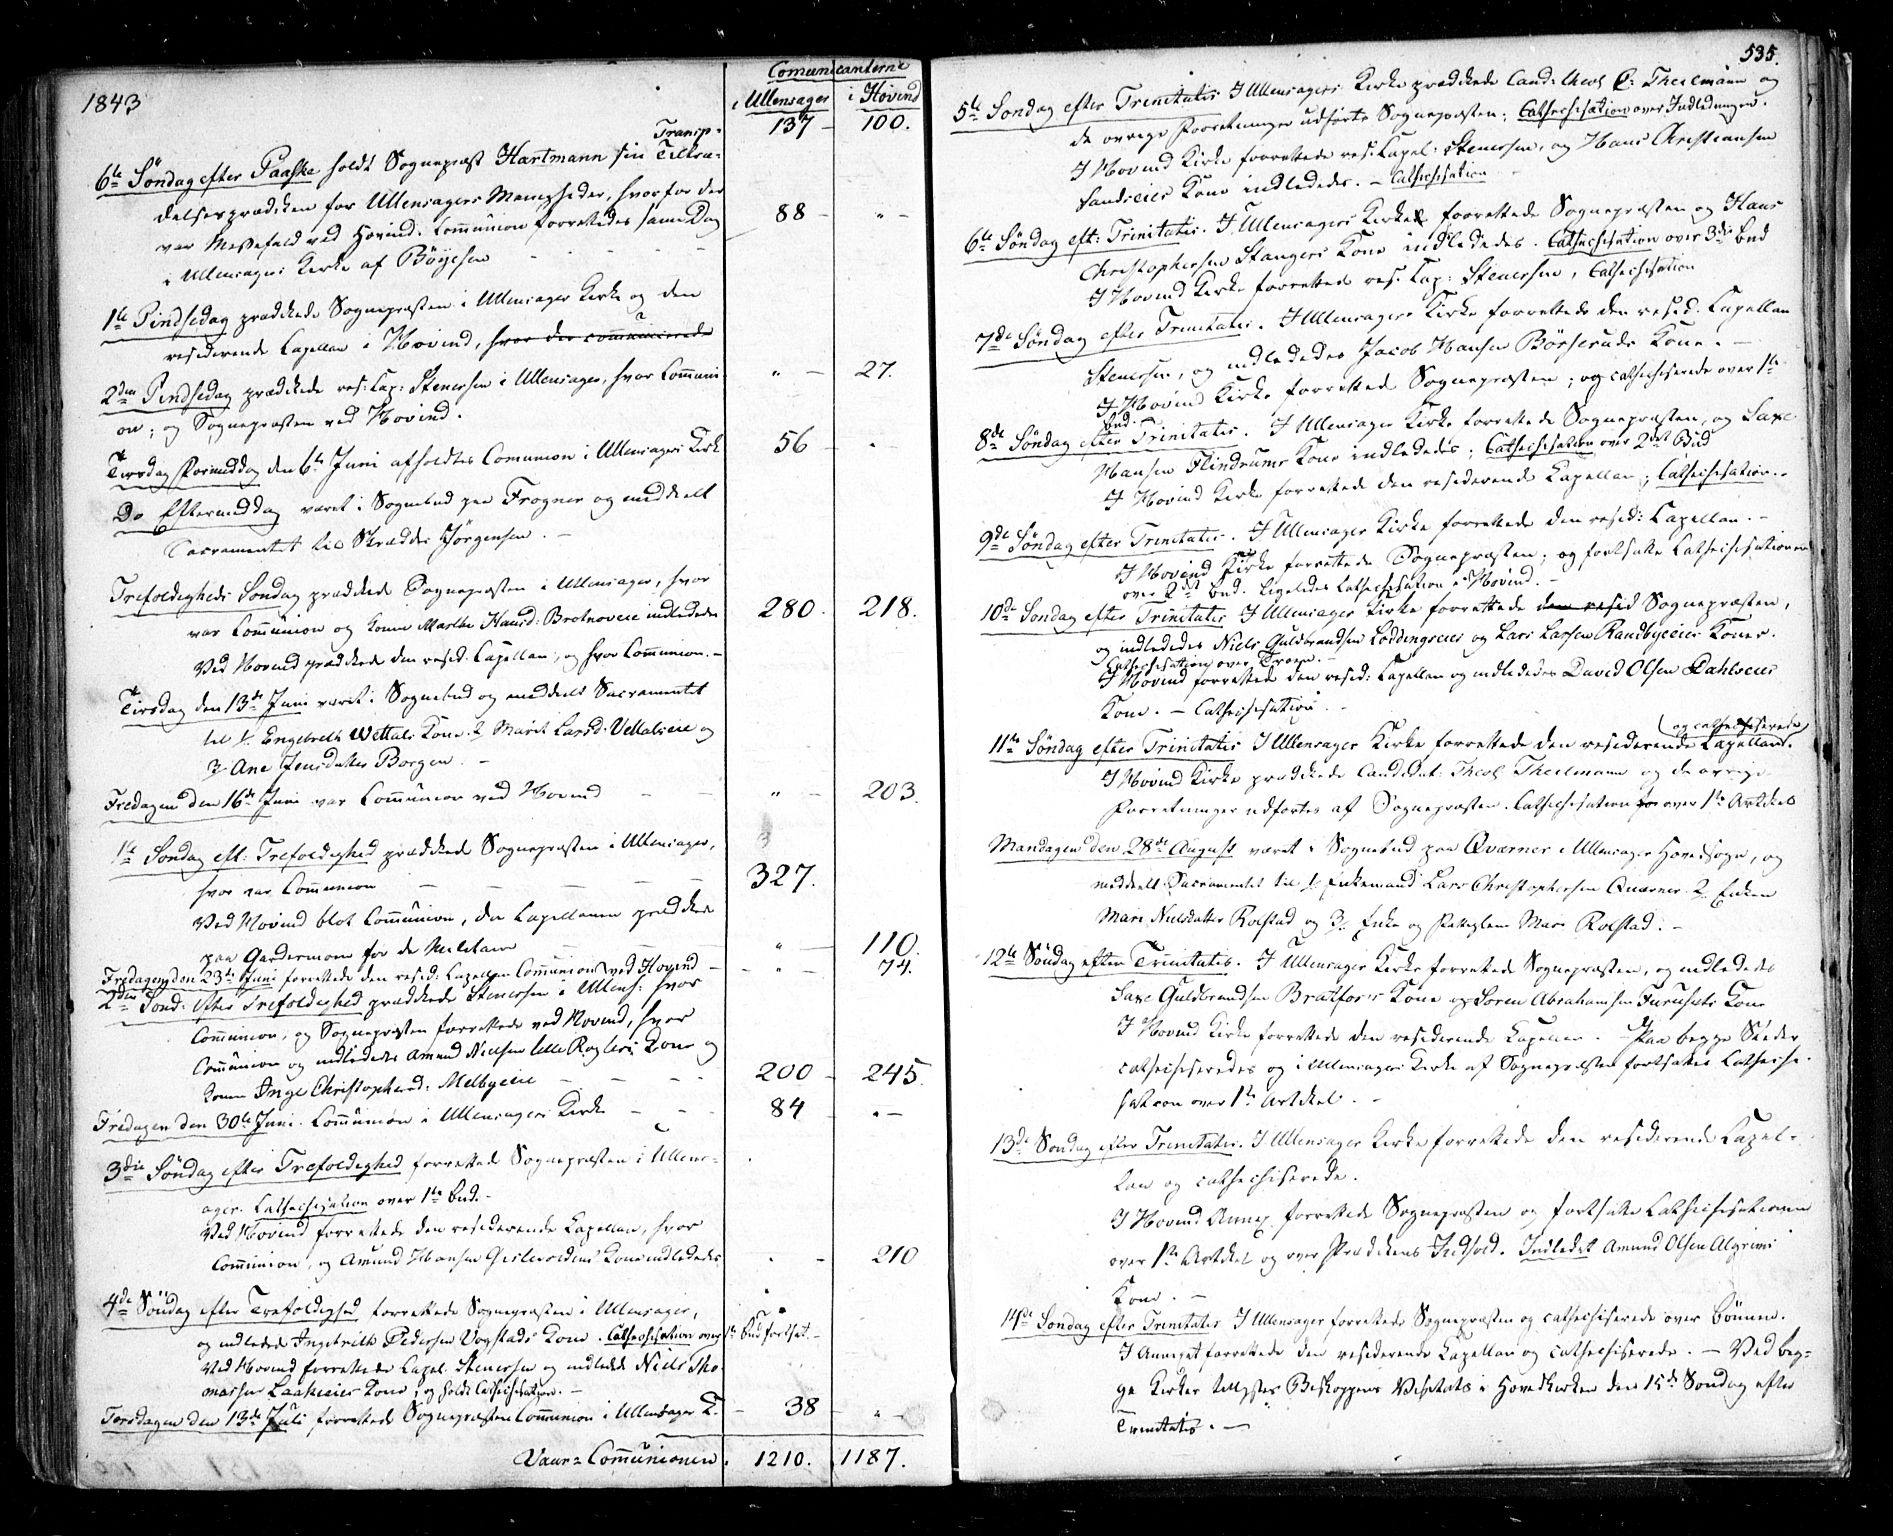 1843
Comunicanterne
i Ullensager i Hovind
Transp: 137 – 100.
6te Søndag efter Paaske holdt Sognepræst Hartmann sin Tiltræ-
delsesprædiken for Ullensagers Menigheder, hvorfor der
var Messefald ved Hovind. Communion forrettedes samme Dag 88 – " –
i Ullensagers Kirke af Böyesen
1te Pindsedag prædikede Sognepræsten i Ullensager Kirke og den
residerende Capellan i Hovind, hvor der communicerede
2den Pindsedag prædikede res: Cap: Stenersen i Ullensager, hvor Communi- " – 27.
on; og Sognepræsten ved Hovind.
Tirsdag Formiddag den 6te Juni afholdtes Comunion i Ullensagers Kirk 56 – " –
Do Eftermiddag været i Sognebud paa Frogner og meddelt
Sacramentet til Skrædder Jörgensen. –
Trefoldigheds Søndag prædikede Sognepræsten i Ullensager, hvor
var Communion og Konen Marthe Hansd: Brotnoveie indlededes 280. 218.
Ved Hovind prædikede den resid. Capellan, og hvor Communion. –
Tirsdag den 13de Juni været i Sognebud og meddelt Sacramentet
til 1, Engebreth Wettals Kone. 2, Marit Larsd. Vettaleie og
3, Ane Jensdatter Borgen. –
Fredagen den 16de Juni var Communion ved Hovind – – " – 203.
1te Søndag eft: Trefoldighed prædikede Sognepræsten i Ullensager,
hvor var Communion – – – – – 327.
Ved Hovind blot Communion, da Capellanen prædikede
paa Gardermoen for de Militaire – – – " – 110.
Fredagen den 23de Juni forrettede den resid. Capellan Communion ved Hovind – " – 74.
2den Sönd: efter Trefoldighed prædikede Stenersen i Ullens: hvor
Communion, og Sognepræsten forrettede ved Hovind, hvor
Communion og indlededes Amund Nielsen lille Raglers Kone og
Konen Inge Christophersd: Melbyeie – – – – 200 – 245.
Fredagen den 30te Juni. Communion i Ullensagers Kirke – – – 84 " –
3die Søndag efter Trefoldighed forrettede Sognepræsten i Ullens-
ager. Cathechisation over 1te bud. –
Ved Hovind forrettede den residerende Capellan, hvor
Communion, og Amund Hansen Kone indlededes " – 210
4de Søndag efter Trefoldighed forrettede Sognepræsten i Ullensager,
og indledede Ingebreth Pedersen Vogstads Kone. Cathechisation over 1te bud fortsat. –
Ved Hovind forrettede Capel. Stenersen og indledede Niels Tho
massen Laakeeies Kone; og holdt Cathechisation. –
Torsdagen den 13de Juli forrettede Sognepræsten Communion i Ullensager K. – 38 – " –
Vaar=Communionen. 1210. 1187.
535.
5te Søndag efter Trinitatis I Ullensagers Kirke prædikede Cand: theol C: Theelmann og
de øvrige Forretninger udførte Sognepræsten; Cathechisation over Indledningen.
I Hovind Kirke forrettede res. Capel: Stenersen, og Hans Christiansen
Sandseies Kone indlededes. – Cathechisation
6te Søndag eft: Trinitatis. I Ullensagers Kirke forrettede Sognepræsten og Hans
Christophersen Stangers Kone indlededes. Cathechisation over 3die bud
I Hovind Kirke forrettede res. Cap: Stenersen, Cathechisation
7de Søndag efter Trinitatis. I Ullensagers Kirke forrettede den resid. Capellan
Stenersen, og indlededes Jacob Hansen Börseruds Kone. –
I Hovind Kirke forrettede Sognepræsten; og cathechiserede over 1te
bud.
8de Søndag efter Trinitatis. I Ullensager Kirke forrettede Sognepræsten, og Saxe
Hansen Flindrums Kone indlededes; Cathechisation over 2det bud
I Hovind Kirke forrettede den residerende Capellan; Cathechisation. –
9de Søndag efter Trinitatis. I Ullensager Kirke forrettede den resid: Capellan. –
I Hovind Kirke forrettede Sognepræsten; og fortsatte Cathechisationen
over 2det bud. Ligeledes Cathechisation i Hovind. –
10de Søndag efter Trinitatis I Ullensager Kirke forrettede den resid Sognepræsten,
og indlededes Niels Guldbrandsen Loddingseies og Lars Larsen Randbyeeies Koner.
Cathechisation over Troen. –
I Hovind forrettede den resid: Capellan og indlededes David Olsen Dahlseies
Kone. – Cathechisation. –
11te Søndag efter Trinitatis I Ullensager Kirke forrettede den residerende Capellan. og cathechiserede
I Hovind Kirke prædikede Candidat: Theol Theelmann og de øvrige
Forretninger udførtes af Sognepræsten. Cathechisation for over 1te Artikel
Mandagen den 28de August været i Sognebud paa Qværner i Ullensager Hovedsogn, og
meddeelt Sacramentet til 1, Enkemand Lars Christophersen Qværner. 2, Enken
Mari Nielsdatter Rolstad og 3, Enke og Mari Rolstad. –
12te Søndag efter Trinitatis. I Ullensager Kirke forrettede Sognepræsten, og indlededes
Saxe Guldbrandsen Bratfoss Kone og Søren Abrahamsen Furusets Kone
I Hovind Kirke forrettede den residerende Capellan. – Paa begge Steder
cathechiseredes og i Ullensagers Kirke af Sognepræsten fortsattes Cathechi-
sation over 1te Artikel. –
13de Søndag efter Trinitatis. I Ullensager Kirke forrettede den residerende Capel-
lan og cathechiserede.
I Hovind Annex forrettede Sognepræsten og fortsatte Cathechisationen
over 1te Artikel og over Prædikens Indhold. Indledet Amund Olsen Algrims
Kone. –
14de Søndag efter Trinitatis I Ullensager forrettede Sognepræsten og cathechiserede over bønnen.
I Annexet forrettede den residerende Capellan og cathechiserede. – Ved beg-
ge Kirker tillystes Biskoppens Visitats i Hovedkirken den 15de Søndag efter
Trinitatis. –